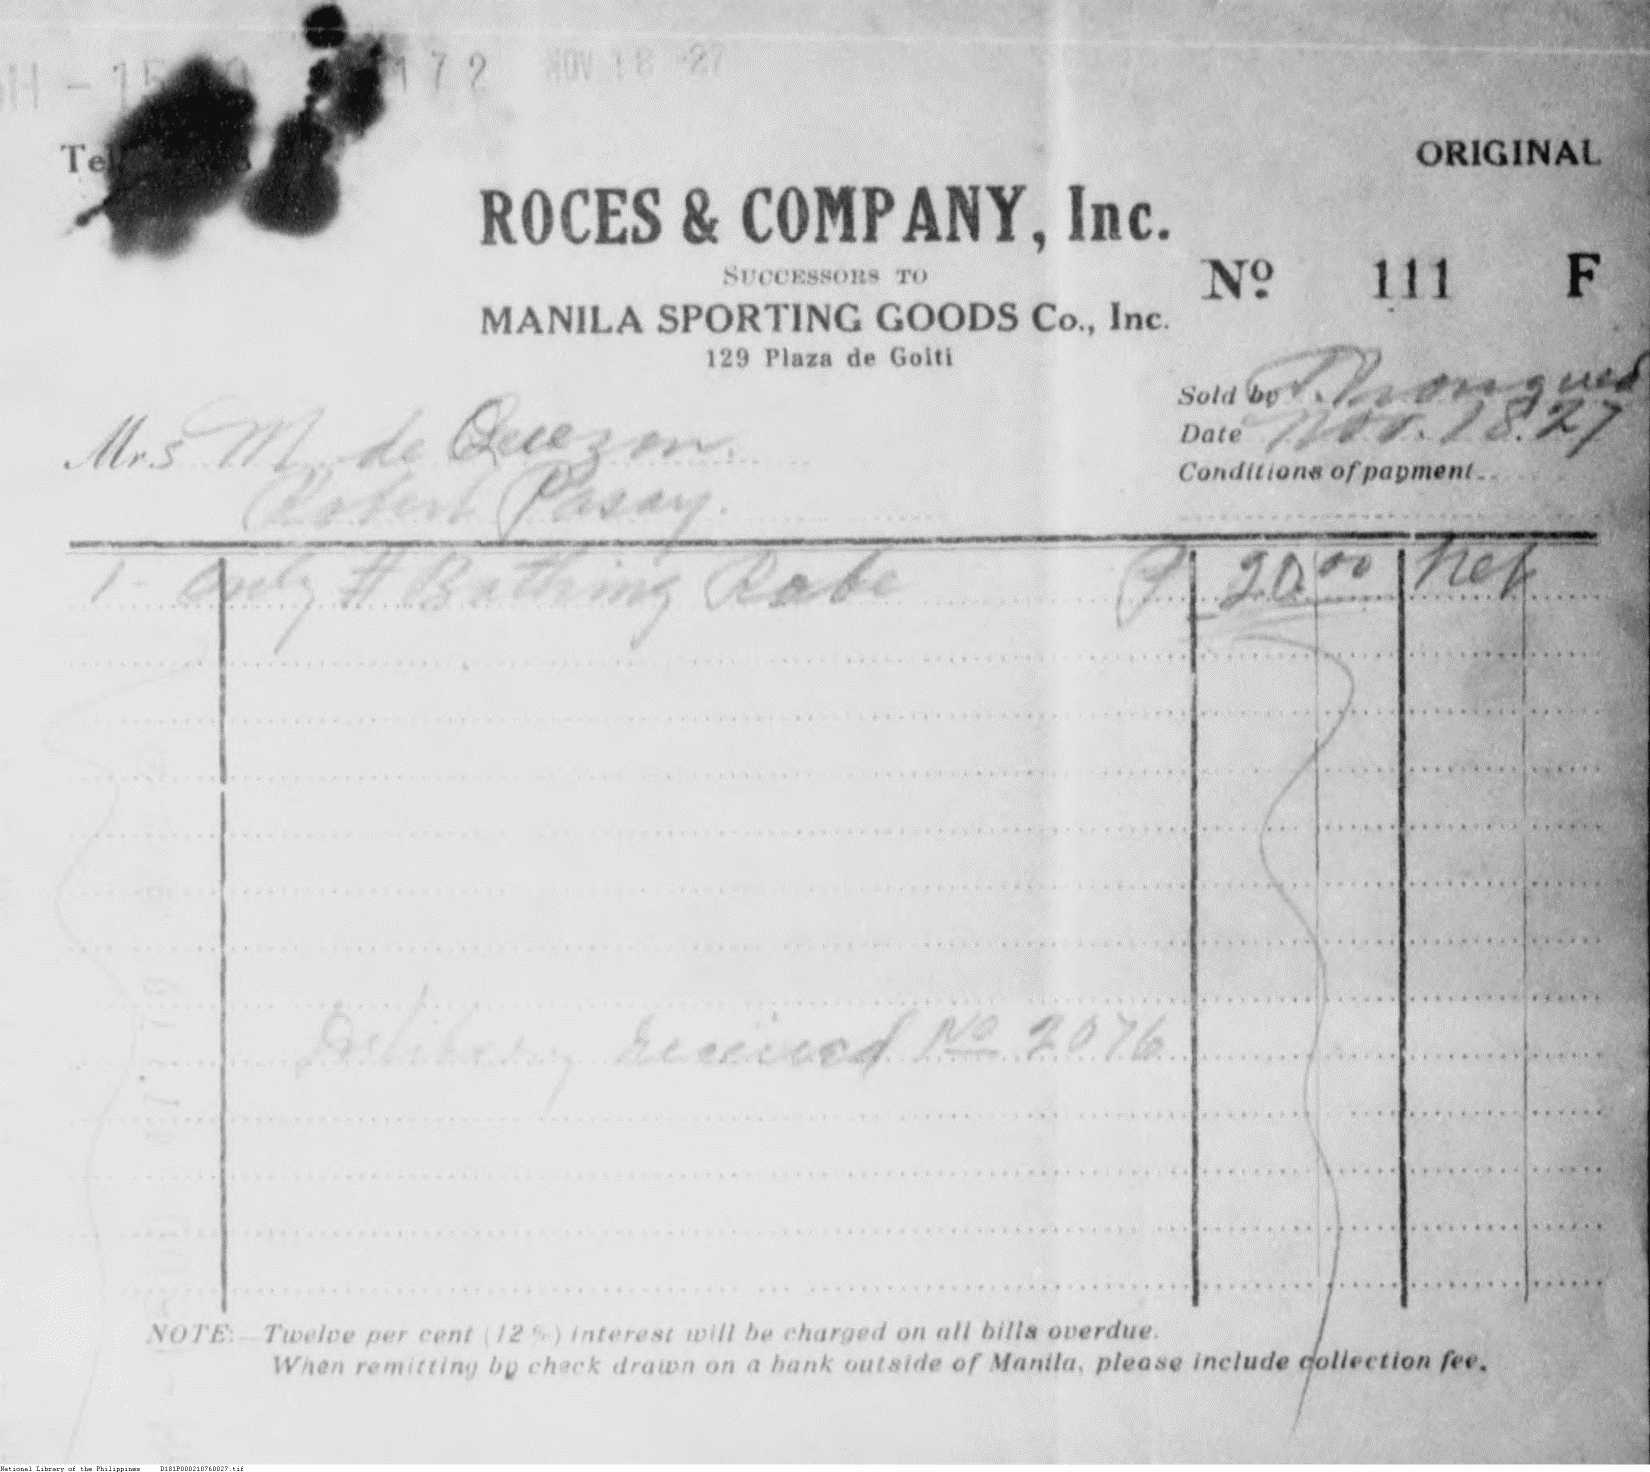 172 NOV 18 '27
ORIGINAL
ROCES & COMPANY, Inc.
SUCCESSORS TO
Nº 111 F
MANILA SPORTING GOODS Co., Inc.
129 Plaza de Goiti
Sold by
Date Nov. 18. 27
Mrs M. de Quezon.
Conditions of payment
Pasay.
1 - Only # Bathing Robe P 20.00 net
Delivery received Nº 2076
NOTE:—Twelve per cent (12%) interest will be charged on all bills overdue.
When remitting by check drawn on a bank outside of Manila, please include collection fee.
National Library of the Philippines D181P000210760027.tif